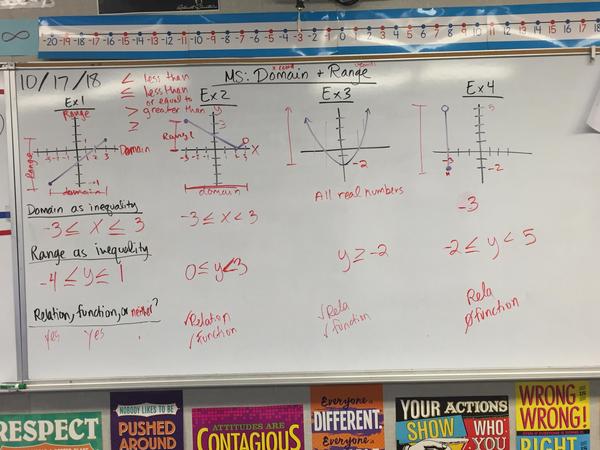 ∞
-20 -19 -18 -17 -16 -15 -14 -13 -12 -11 -10 -9 -8 -7 -6 -5 -4 -3 -2 -1 0 1 2 3 4 5 6 7 8 9 10 11 12 13 14 15 16 17 18
10/17/18
< less than
≤ less than or equal to
> greater than
≥
MS: Domain + Range
Ex 1
Range
Domain
Range
domain
Ex 2
y
3
x
domain
Ex 3
-2
Ex 4
5
-3
-2
Domain as inequality
-3 ≤ x ≤ 3
-3 ≤ x < 3
All real numbers
-3
Range as inequality
-4 ≤ y ≤ 1
0 ≤ y < 3
y ≥ -2
-2 ≤ y < 5
Relation, function, or neither?
yes yes
✓Relation
✓Function
✓Rela
✓function
Rela
function
RESPECT
NOBODY LIKES TO BE
PUSHED
AROUND
ATTITUDES ARE
CONTAGIOUS
Everyone is
DIFFERENT.
Everyone is
YOUR ACTIONS
SHOW WHO
YOU
WRONG IS
WRONG!
RIGHT